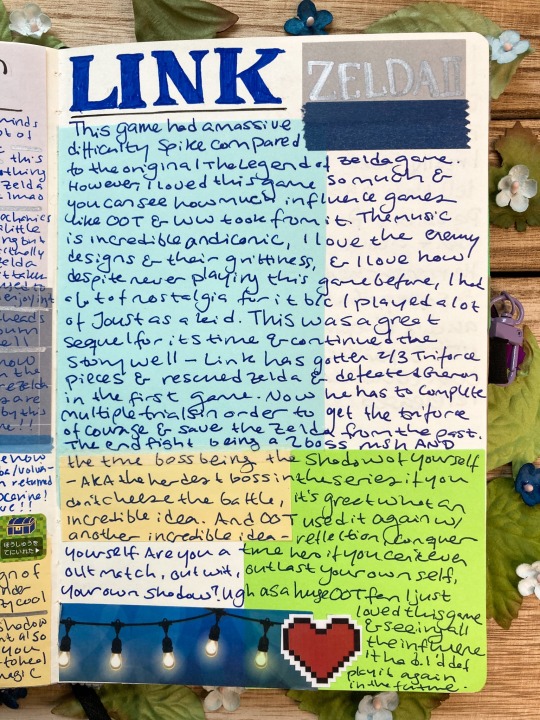 LINK
ZELDA II
This game had a massive
difficulty spike compared
to the original The Legend of Zelda game.
However, I loved this game so much &
you can see how much influence games
like OOT & WW took from it. The music
is incredible and iconic, I love the enemy
designs & their grittiness, & I love how
despite never playing this game before, I had
a lot of nostalgia for it b/c I played a lot
of Joust as a kid. This was a great
sequel for its time & continued the
story well - Link has gotten 2/3 Triforce
pieces & rescued Zelda & defeated Ganon
in the first game. Now he has to complete
multiple trials in order to get the triforce
of courage & save the Zelda from the past.
The end fight being a 2 boss rush AND
the true boss being the Shadow of yourself
- AKA the hardest boss in the series if you
don't cheese the battle, it's great what an
incredible idea. And OOT used it again w/
another incredible idea - reflection, conquer
yourself. Are you a true hero if you can even
outmatch, outwit, outlast your own self,
your own shadow? Ugh as a huge OOT fan I just
loved this game
& seeing all
the influence
it had. I'd def
play it again
in the future.